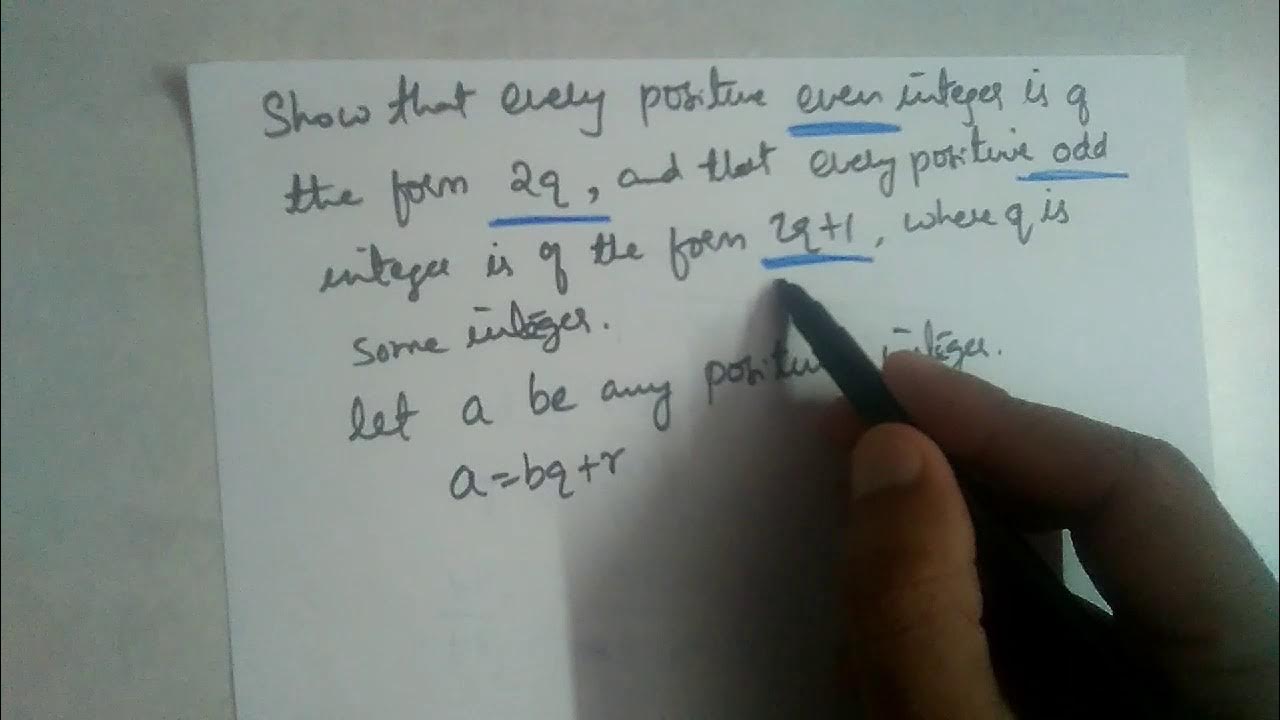 Show that every positive even integer is of
the form 2q, and that every positive odd
integer is of the form 2q+1, where q is
some integer.
let a be any positive integer.
a=bq+r